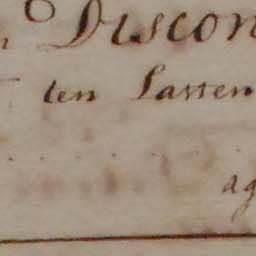 Discon
ten Lasten
ag